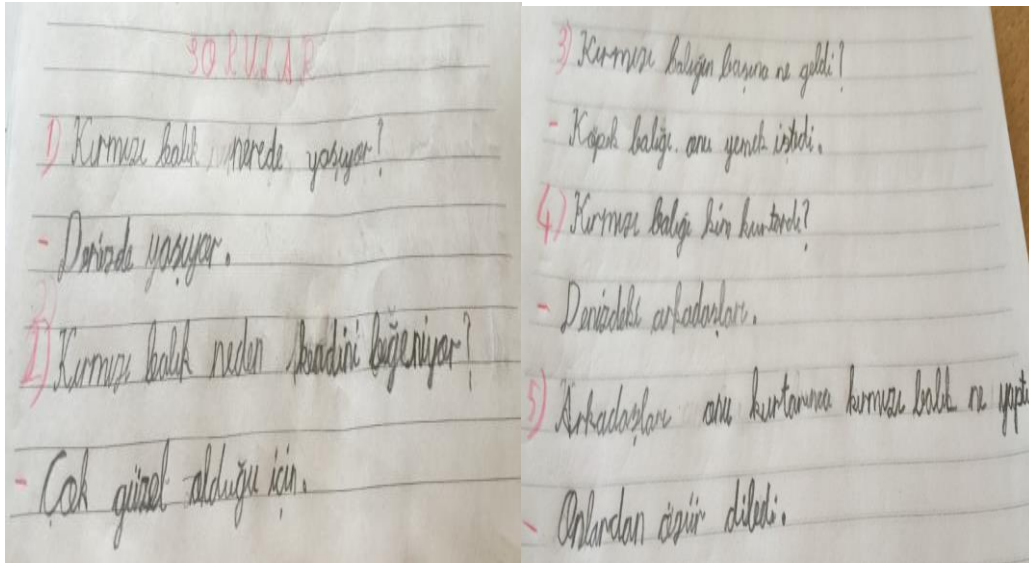 SORULAR
1) Kırmızı balık, nerede yaşıyor?
- Denizde yaşıyor.
2) Kırmızı balık neden kendini biğeniyor?
- Çok güzel olduğu için.
3) Kırmızı balığın başına ne geldi?
- Köpek balığı onu yemek istedi.
4) Kırmızı balığı kim kurtardı?
- Denizdeki arkadaşları.
5) Arkadaşları onu kurtarınca kırmızı balık ne yaptı
- Onlardan özür diledi.